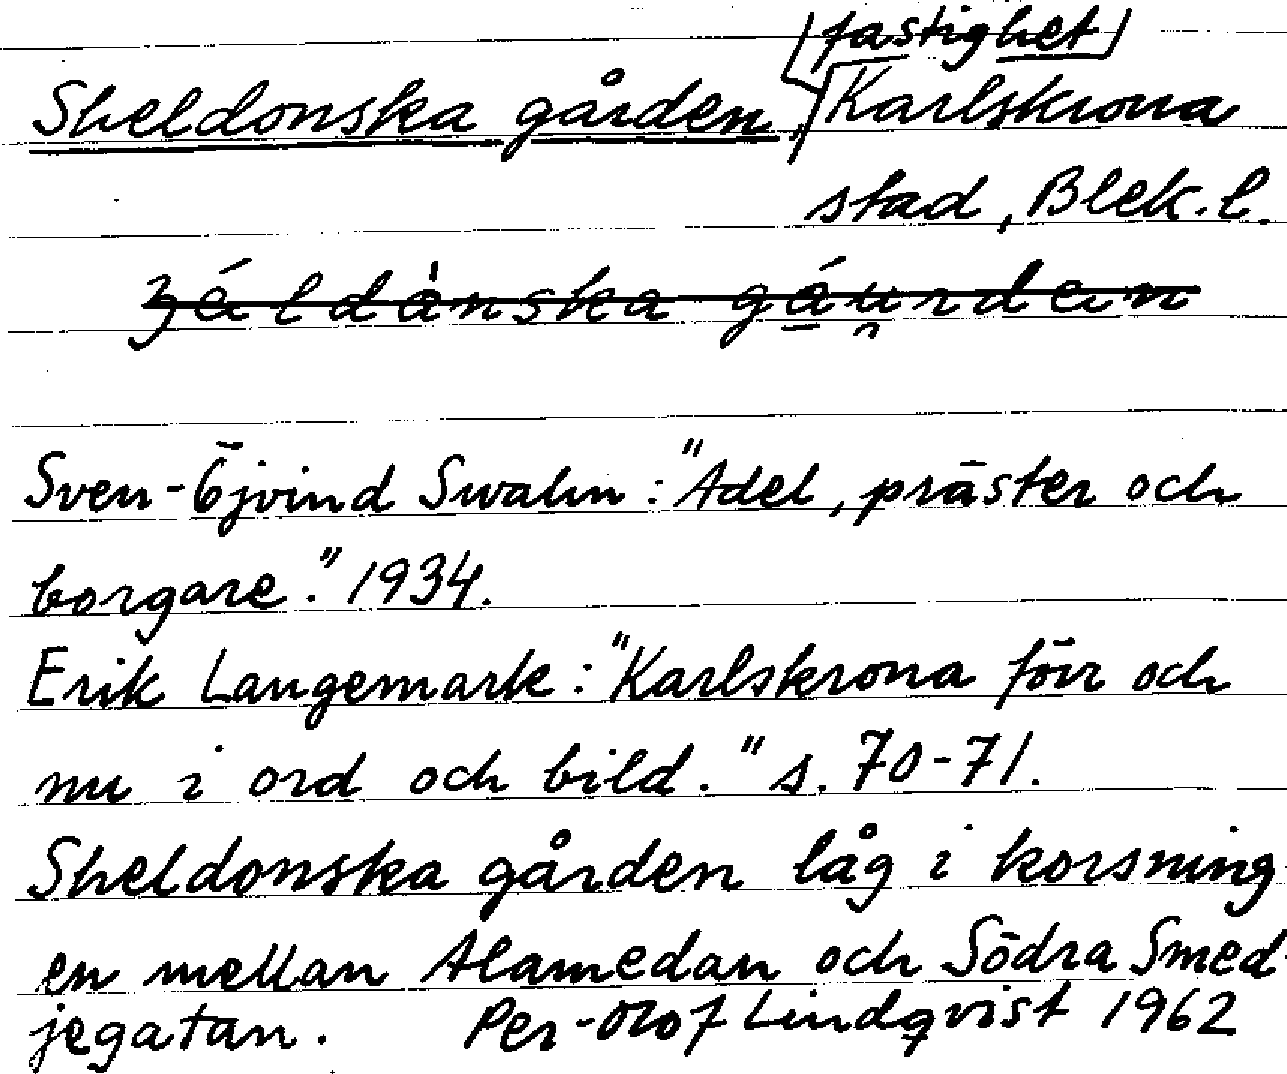 [fastighet]
Sheldonska gården, Karlskrona
stad, Blek. l.
Sven-Öjvind Swahn: "Adel, präster och
borgare." 1934.
Erik Langemark: "Karlskrona förr och
nu i ord och bild." s. 70-71.
Sheldonska gården låg i korsning-
en mellan Alamedan och Södra Smed-
jegatan. Per-Olof Lindqvist 1962